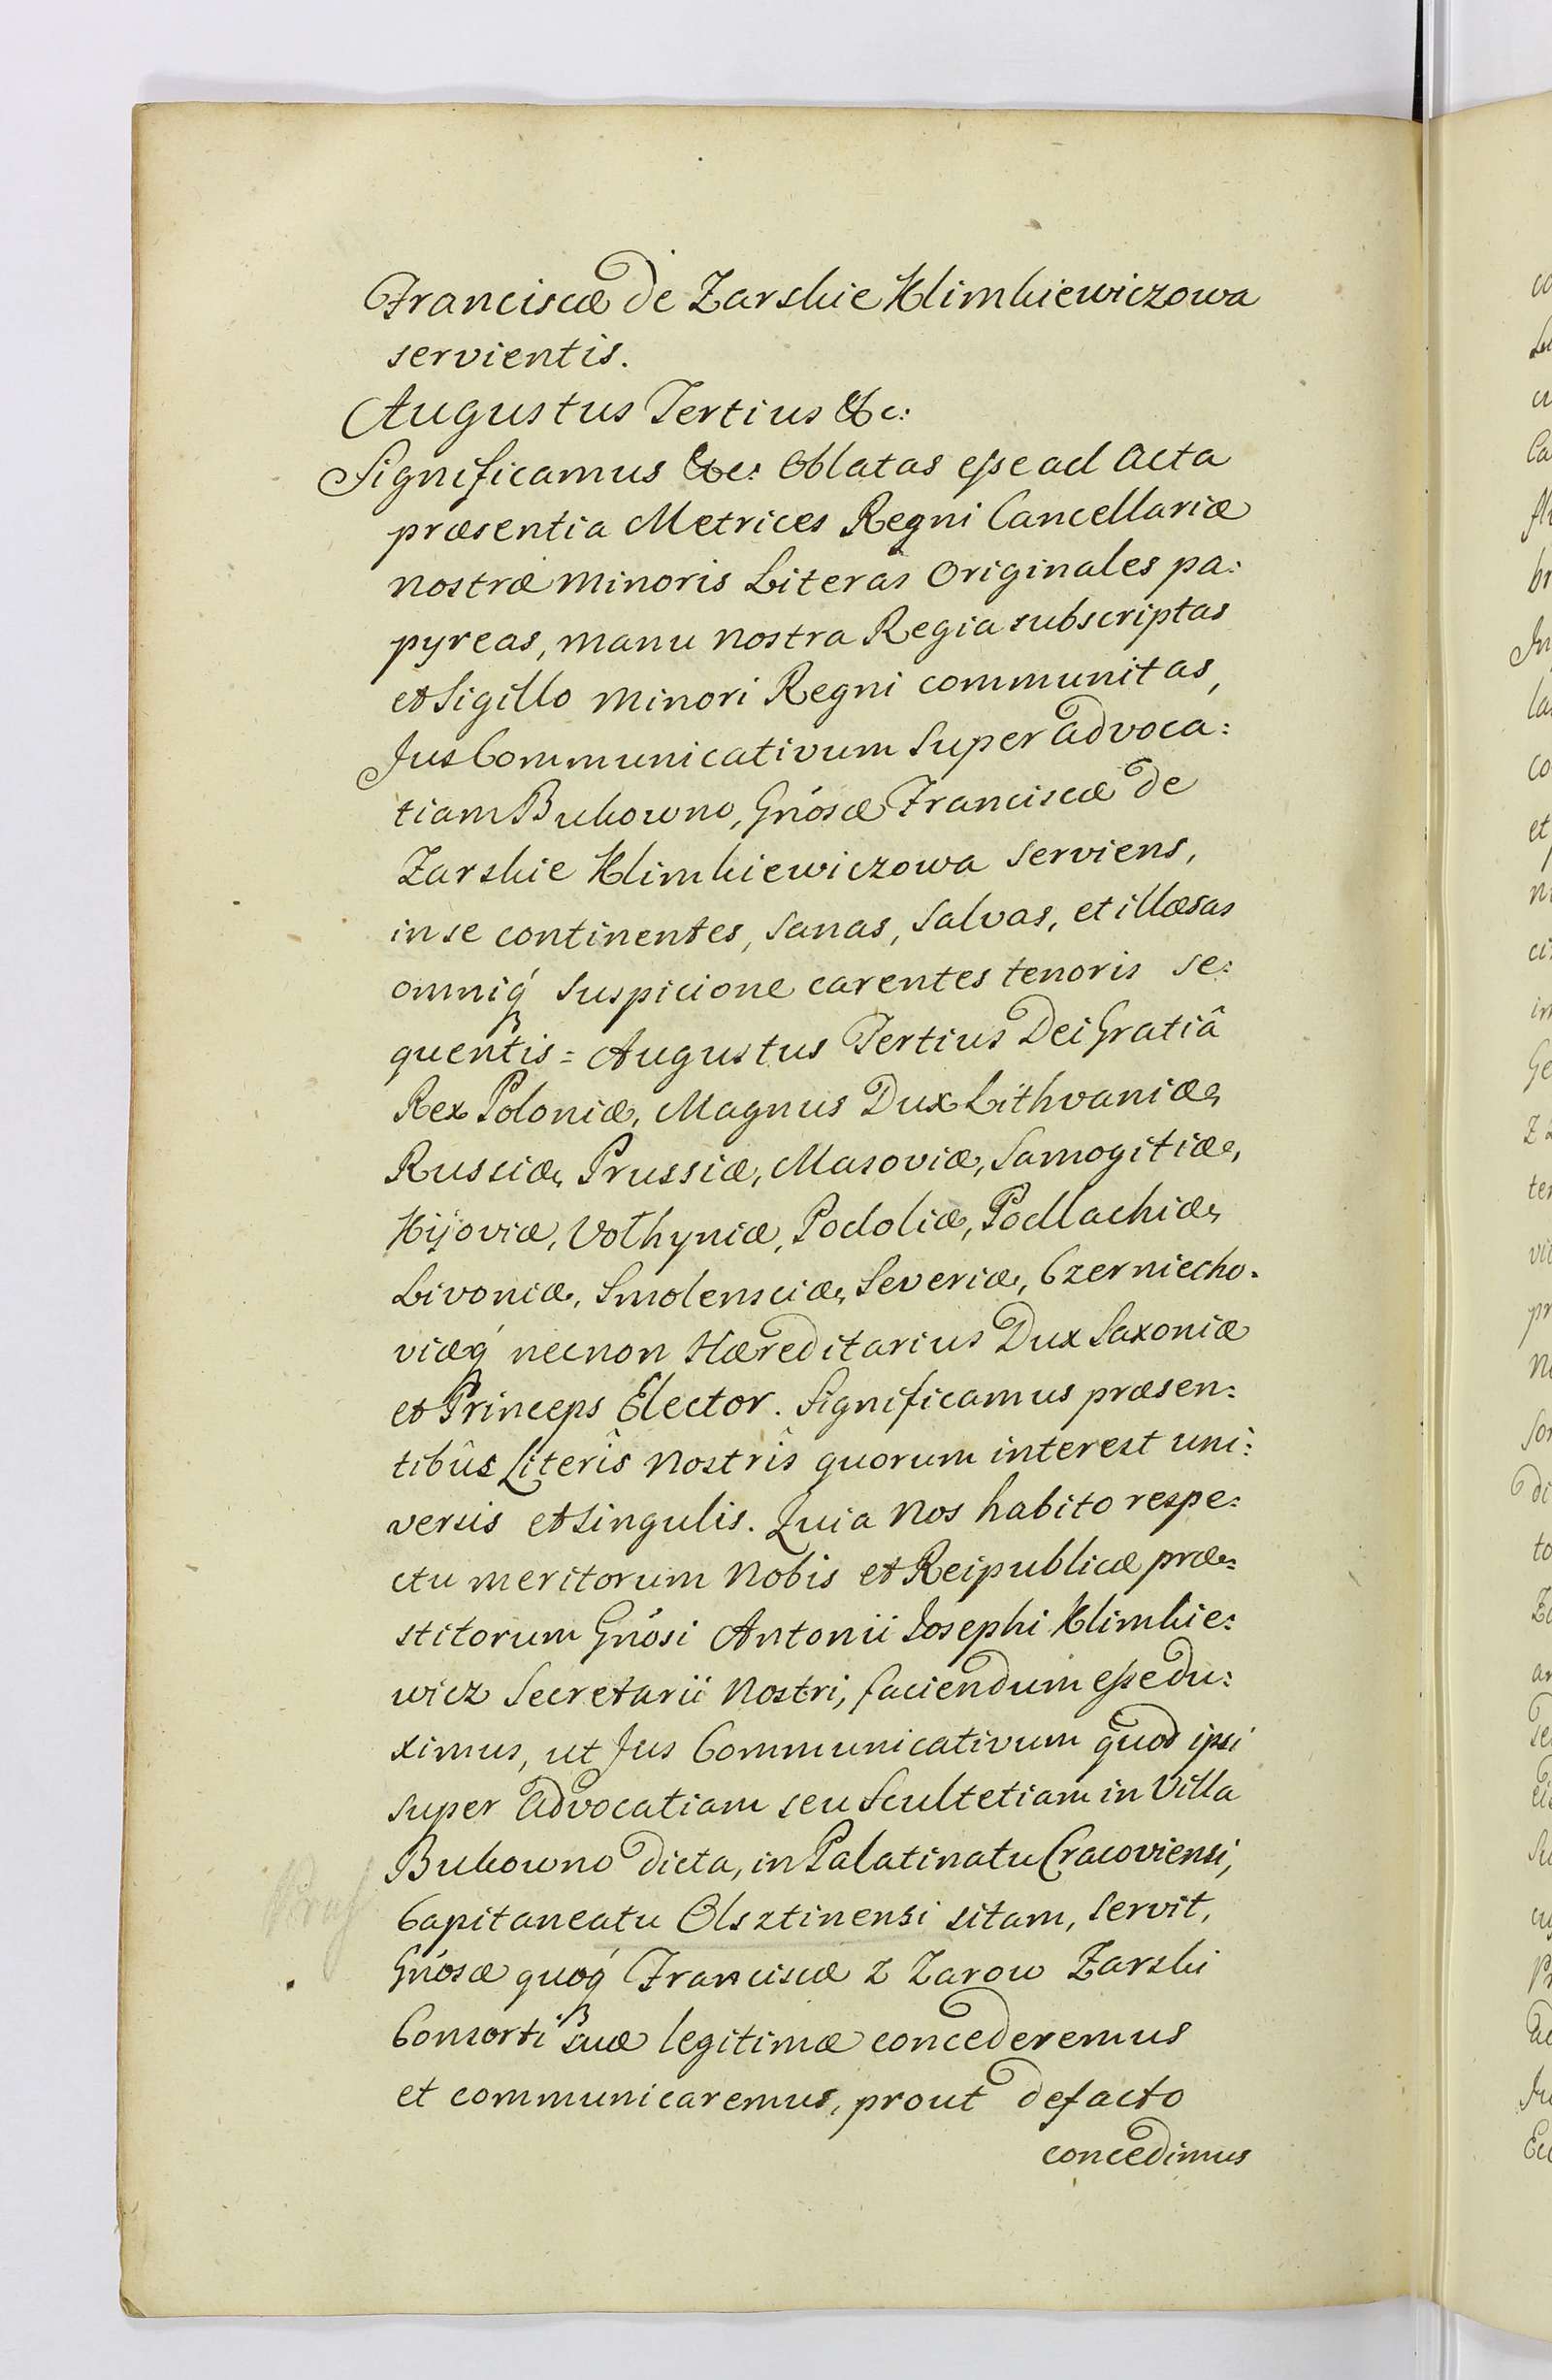 Franciscæ de Zarskie Klimkiewiczowa
servientis.
Augustus Tertius &c:
Significamus &c: Oblatas esse ad Acta
præsentia Metrices Regni Cancellariæ
nostræ minoris Literas Originales pa:
pyreas, manu nostra Regia subscriptas
et Sigillo minori Regni communitas,
Jus Communicativum super advoca:
tiam Bukowno, Gnosæ Franciscæ de
Zarskie Klimkiewiczowa serviens,
in se continentes, sanas, salvas, et illæsas
omniq́ suspicione carentes tenoris se:
quentis = Augustus Tertius Dei Gratiâ
Rex Poloniæ, Magnus Dux Lithvaniæ,
Russiæ, Prussiæ, Masoviæ, Samogitiæ,
Kijoviæ, Volhyniæ, Podoliæ, Podlachiæ,
Livoniæ, Smolensciæ, Severiæ, Czerniecho.
viæq́ necnon Hæreditarius Dux Saxoniæ
et Princeps Elector. Significamus præsen:
tibûs Literîs nostrîs quorum interest uni:
versis et singulis. Quia nos habito respe:
ctu meritorum Nobis et Reipublicæ præ:
stitorum Gnosi Antonii Josephi Klimkie:
wicz Secretarii Nostri, faciendum esse du:
ximus, ut Jus Communicativum quod ipsi
super advocatiam seu Scultetiam in Villa
Bukowno dicta, in Palatinatu Cracoviensi,
Capitaneatu Olsztinensi sitam, servit,
Gnosæ quoq́ Franciscæ z Zarow Zarski
Consorti suæ legitimæ concederemus
et communicaremus, prout de facto
concedimus